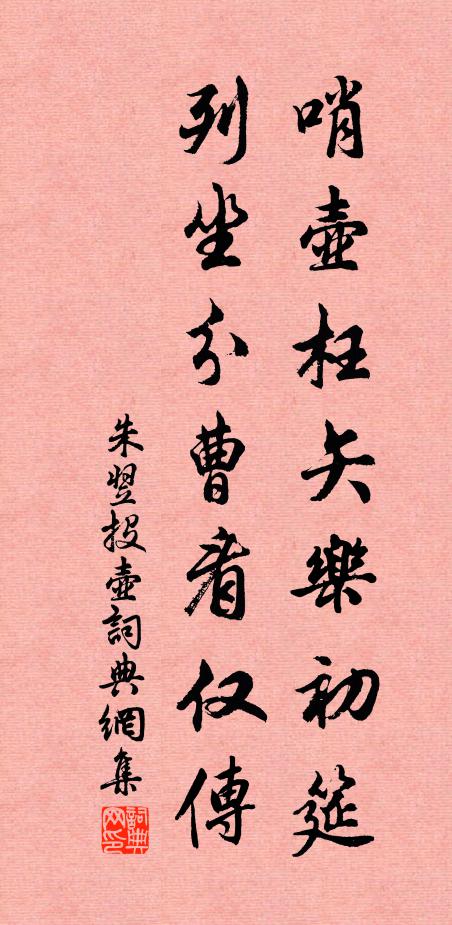 哨壺枉矢樂初筵
列坐分曹看仅傳
朱翌投壺詞典網集
詞典网印